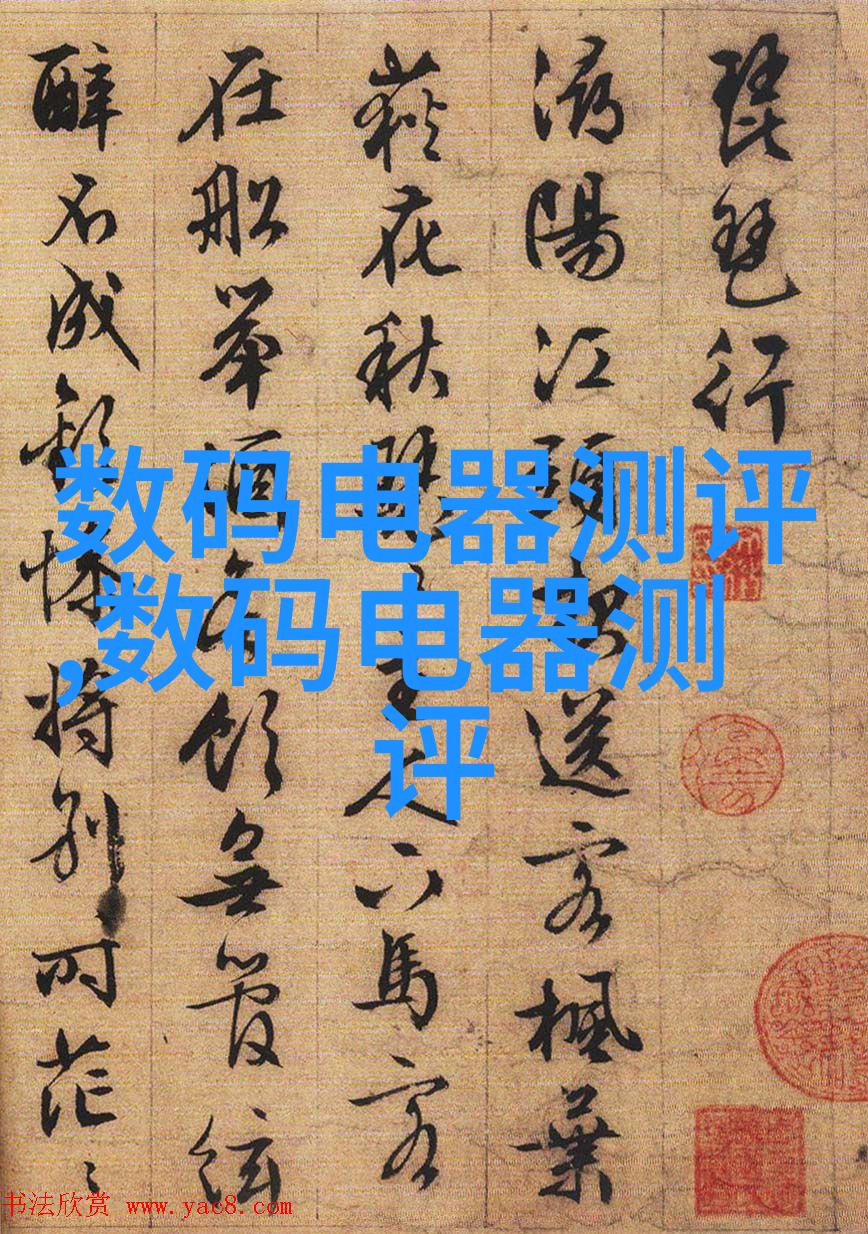 琵琶行
潯陽江頭夜送客楓葉
荻花秋瑟〻主人下馬客
在船舉酒欲飲無管絃
醉不成歡慘將別時茫〻
数码电器测评
,数码电器测
评
书法欣赏 www.yac8.com